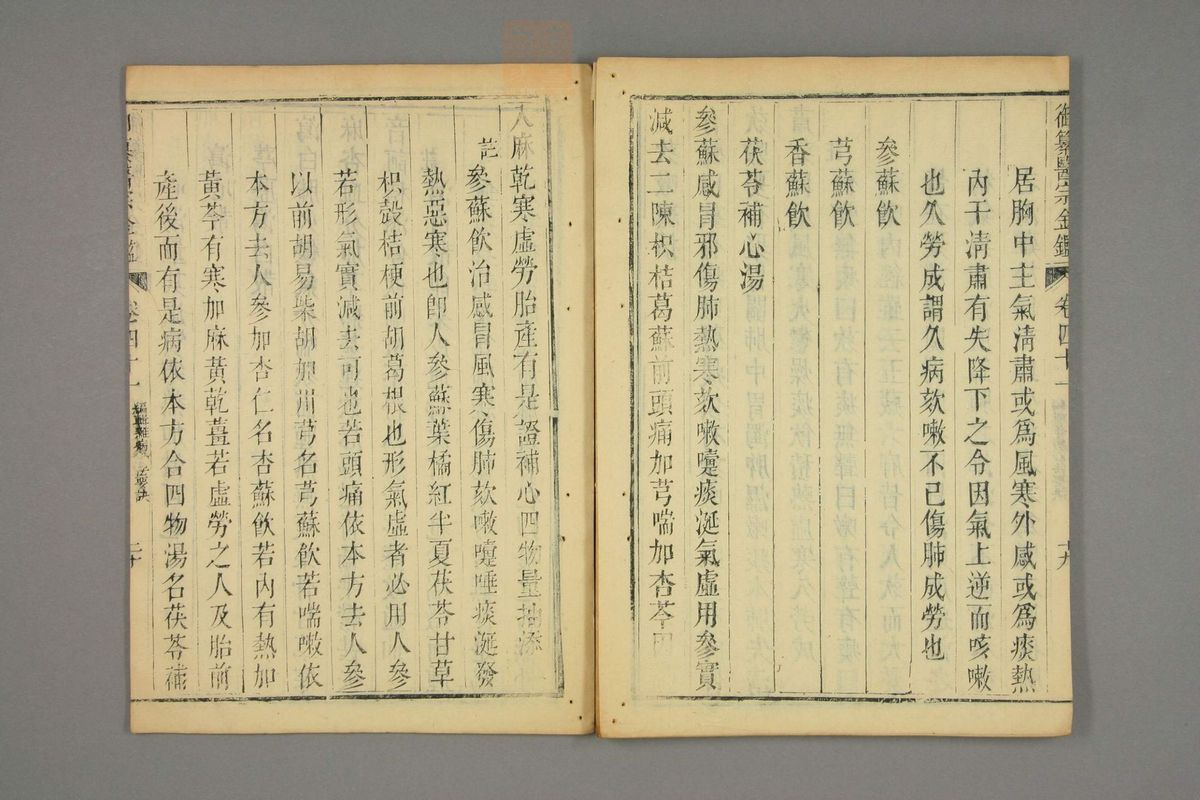 御纂醫宗金鑑 卷四十一 十九
居胸中主氣清肅或爲風寒外感或爲痰熱
內干清肅有失降下之令因氣上逆而咳嗽
也久勞成謂久病欬嗽不已傷肺成勞也
參蘇飲
芎蘇飲
香蘇飲
茯苓補心湯
參蘇感冒邪傷肺熱寒欬嗽嚏痰涎氣虛用參實
減去二陳枳桔葛蘇前頭痛加芎喘加杏芩因
入麻乾寒虛勞胎產有是證補心四物量抽添
註參蘇飲治感冒風寒傷肺欬嗽嚏唾痰涎發
熱惡寒也卽人參蘇葉橘紅半夏茯苓甘草
枳殼桔梗前胡葛根也形氣虛者必用人參
若形氣實減去可也若頭痛依本方去人參
以前胡易柴胡加川芎名芎蘇飲若喘嗽依
本方去人參加杏仁名杏蘇飲若內有熱加
黃芩有寒加麻黃乾薑若虛勞之人及胎前
產後而有是病依本方合四物湯名茯苓補
卷四十一 編輯雜病心法要訣 二十